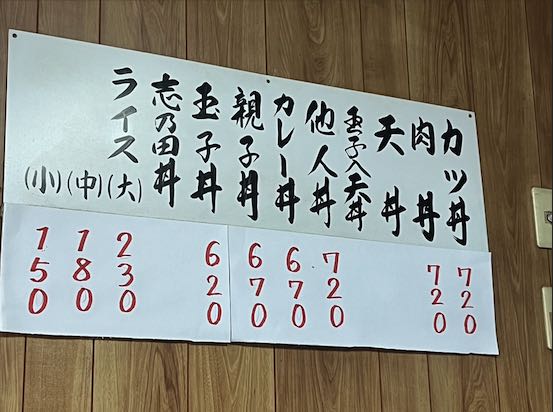 カツ丼 720
肉丼 720
天丼
玉子入天丼
他人丼 720
カレー丼 670
親子丼 670
玉子丼 620
志乃田丼
ライス
(大) 230
(中) 180
(小) 150